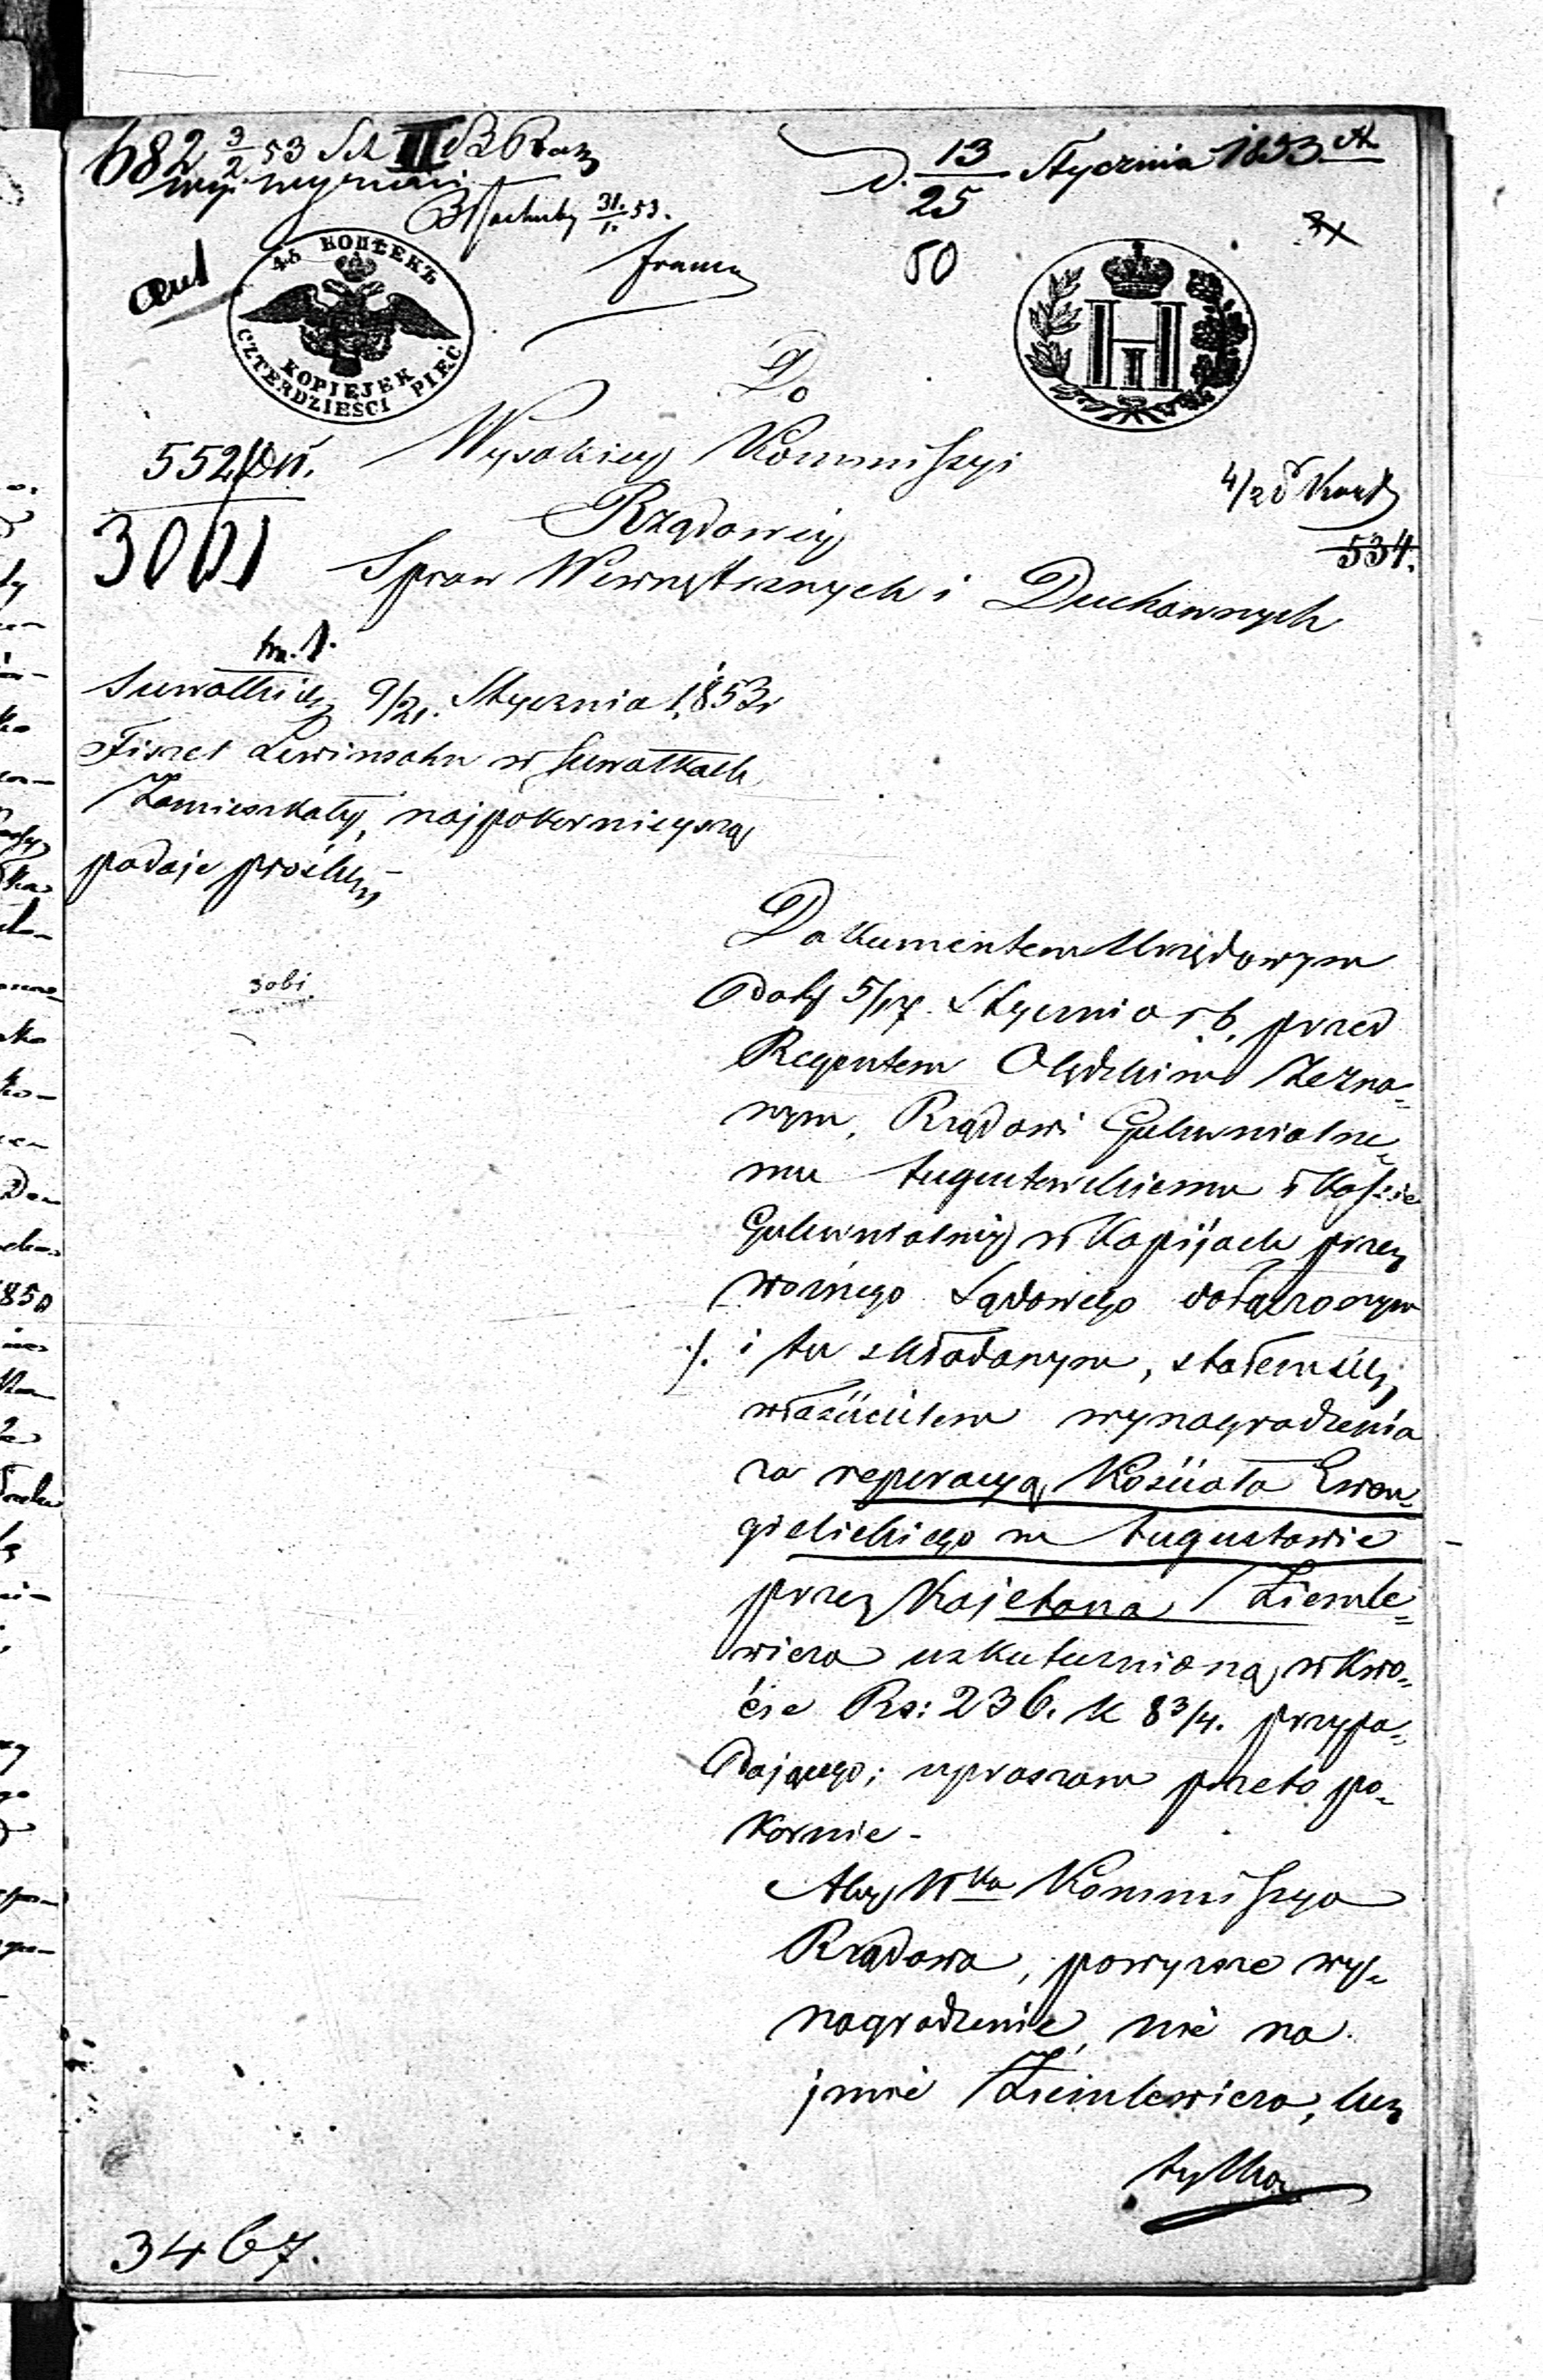 682 3/2 53
D. 13/25 Stycznia 1853
50
45 КОПѢЕКЪ
KOPIEJEK
CZTERDZIEŚCI PIĘĆ
H II
Do
Wysokiey Kommissyi
Rządowey
Spraw Wewnętrznych i Duchownych
552
3001
534.
Suwałki d. 9/21. Stycznia 1853 r
Fiszel Lewinsohn w Suwałkach
Zamieszkały, najpokornieyszą
podaje prośbę
Dokumentem Urzędowym
daty 5/17. Stycznia r. b. przed
Regentem Olędzkim zezna-
nym, Rządowi Gubernialne-
mu Augustowskiemu i Kassie
Gubernialney w Kopijach przez
woźnego Sądowego doręczonym
/. i tu składanym, stałem się
właścicielem wynagrodzenia
za reperacyą Kościoła Ewan-
gielickiego w Augustowie
przez Kajetana Ziemle-
wicza uskutecznioną w kwo-
cie Rs: 236. k 8 3/4. przypa-
dającego; upraszam przeto po-
kornie -
Aby Wka Kommissya
Rządowa, powyższe wy-
nagrodzenie, nie na
jmie Ziemlewicza, lecz
tylko
3467.